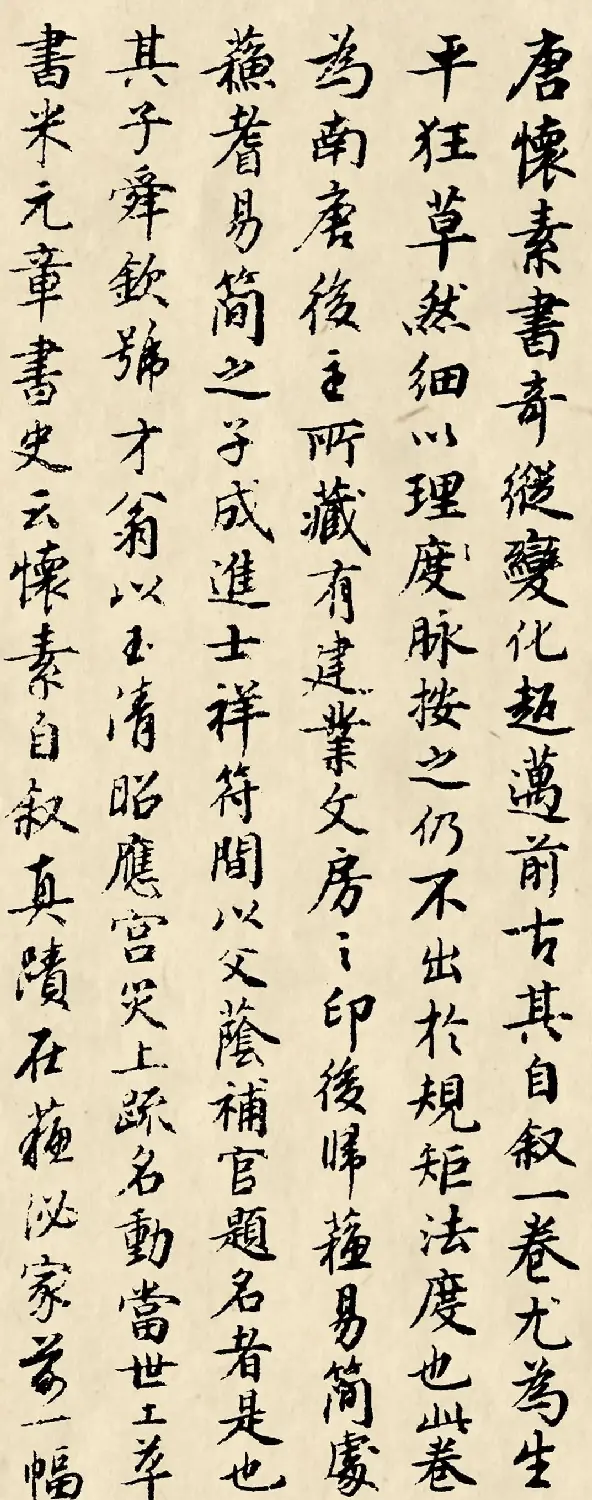 唐懷素書奇縱變化超邁前古其自叙一卷尤為生
平狂草然細以理度脉按之仍不出於規矩法度也此卷
為南唐後主所藏有建業文房之印後歸蘓易簡處
蘓耆易簡之子成進士祥符間以父蔭補官題名者是也
其子舜欽號才翁以玉清昭應宮災上疏名動當世工草
書米元章書史云懷素自叙真蹟在蘓泌家前一幅